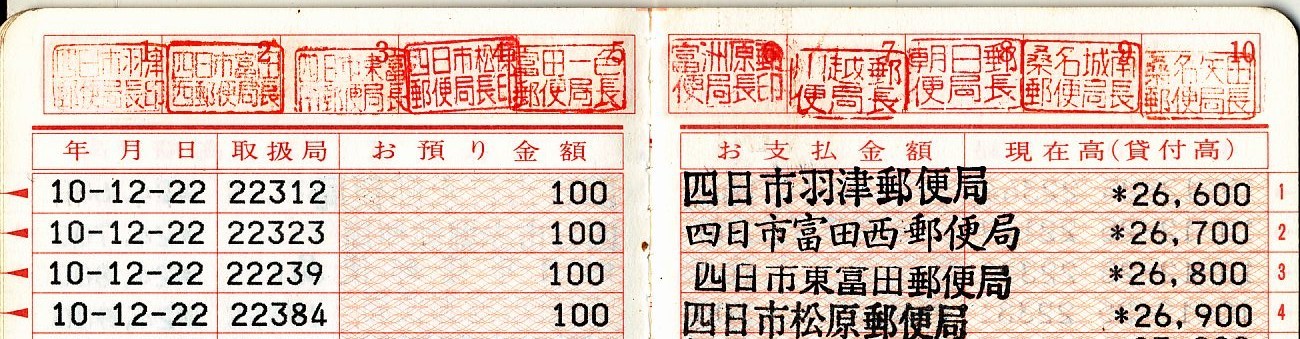 1 2 3 4 5 6 7 8 9 10
四日市羽津郵便局長印
四日市富田西郵便局長
四日市東富田郵便局長
四日市松原郵便局長印
富田一色郵便局長
富洲原郵便局長印
郵便局長
朝日郵便局長
桑名城南郵便局長
桑名矢田郵便局長
年月日 取扱局 お預り金額 お支払金額 現在高(貸付高)
10-12-22 22312 100 四日市羽津郵便局 *26,600 1
10-12-22 22323 100 四日市富田西郵便局 *26,700 2
10-12-22 22239 100 四日市東富田郵便局 *26,800 3
10-12-22 22384 100 四日市松原郵便局 *26,900 4